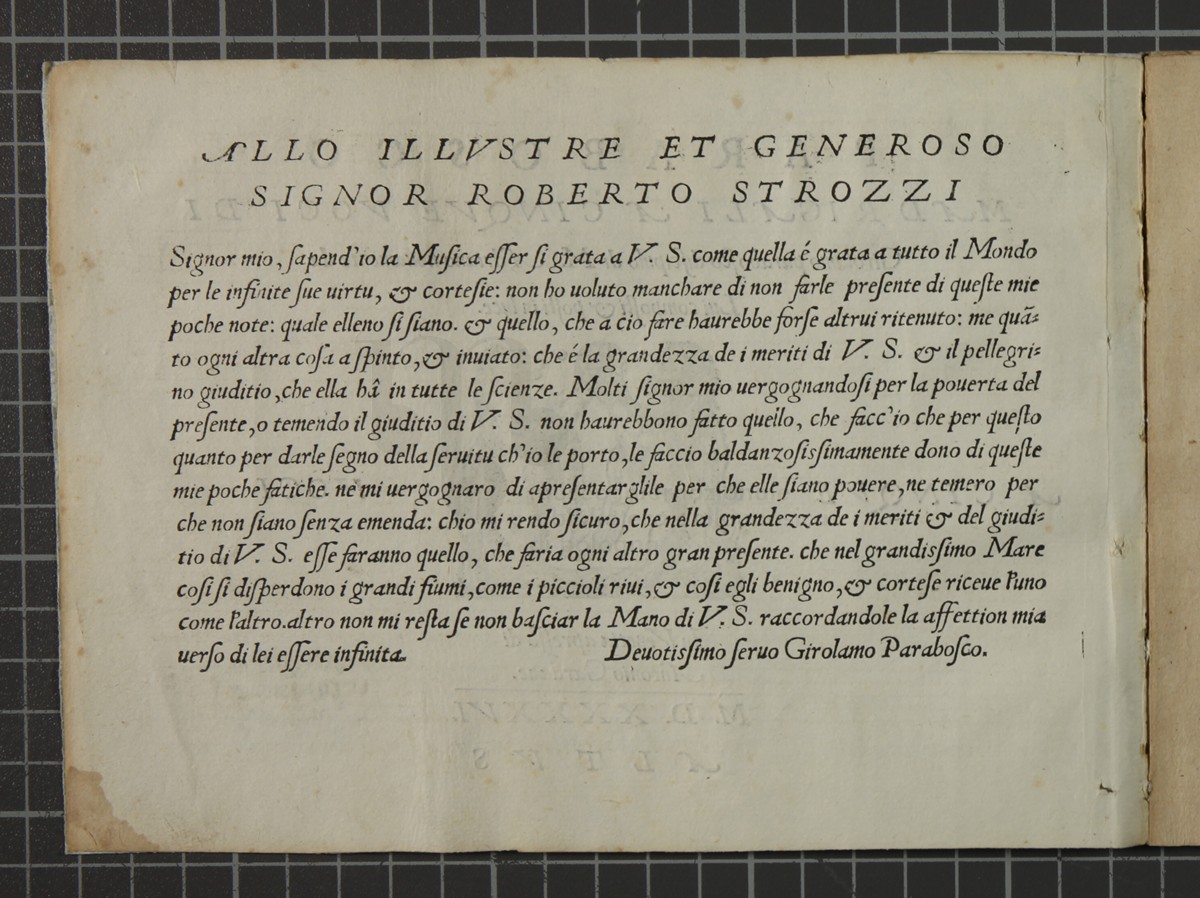 ALLO ILLVSTRE ET GENEROSO
SIGNOR ROBERTO STROZZI
Signor mio, ſapend'io la Muſica eſſer ſi grata a V. S. come quella é grata a tutto il Mondo
per le infinite ſue uirtu, & corteſie: non ho uoluto manchare di non farle preſente di queſte mie
poche note: quale elleno ſi ſiano. & quello, che a cio fare haurebbe forſe altrui ritenuto: me quã-
to ogni altra coſa a ſpinto, & inuiato: che é la grandezza de i meriti di V. S. & il pellegri-
no giuditio, che ella hâ in tutte le ſcienze. Molti ſignor mio uergognandoſi per la pouerta del
preſente, o temendo il giuditio di V. S. non haurebbono fatto quello, che facc'io che per queſto
quanto per darle ſegno della ſeruitu ch'io le porto, le faccio baldanzoſisſimamente dono di queſte
mie poche fatiche. ne mi uergognaro di apreſentarglile per che elle ſiano pouere, ne temero per
che non ſiano ſenza emenda: chio mi rendo ſicuro, che nella grandezza de i meriti & del giudi-
tio di V. S. eſſe faranno quello, che faria ogni altro gran preſente. che nel grandisſimo Mare
coſi ſi diſperdono i grandi fiumi, come i piccioli riui, & coſi egli benigno, & corteſe riceue l'uno
come l'altro. altro non mi reſta ſe non baſciar la Mano di V. S. raccordandole la affettion mia
uerſo di lei eſſere infinita. Deuotisſimo ſeruo Girolamo Paraboſco.